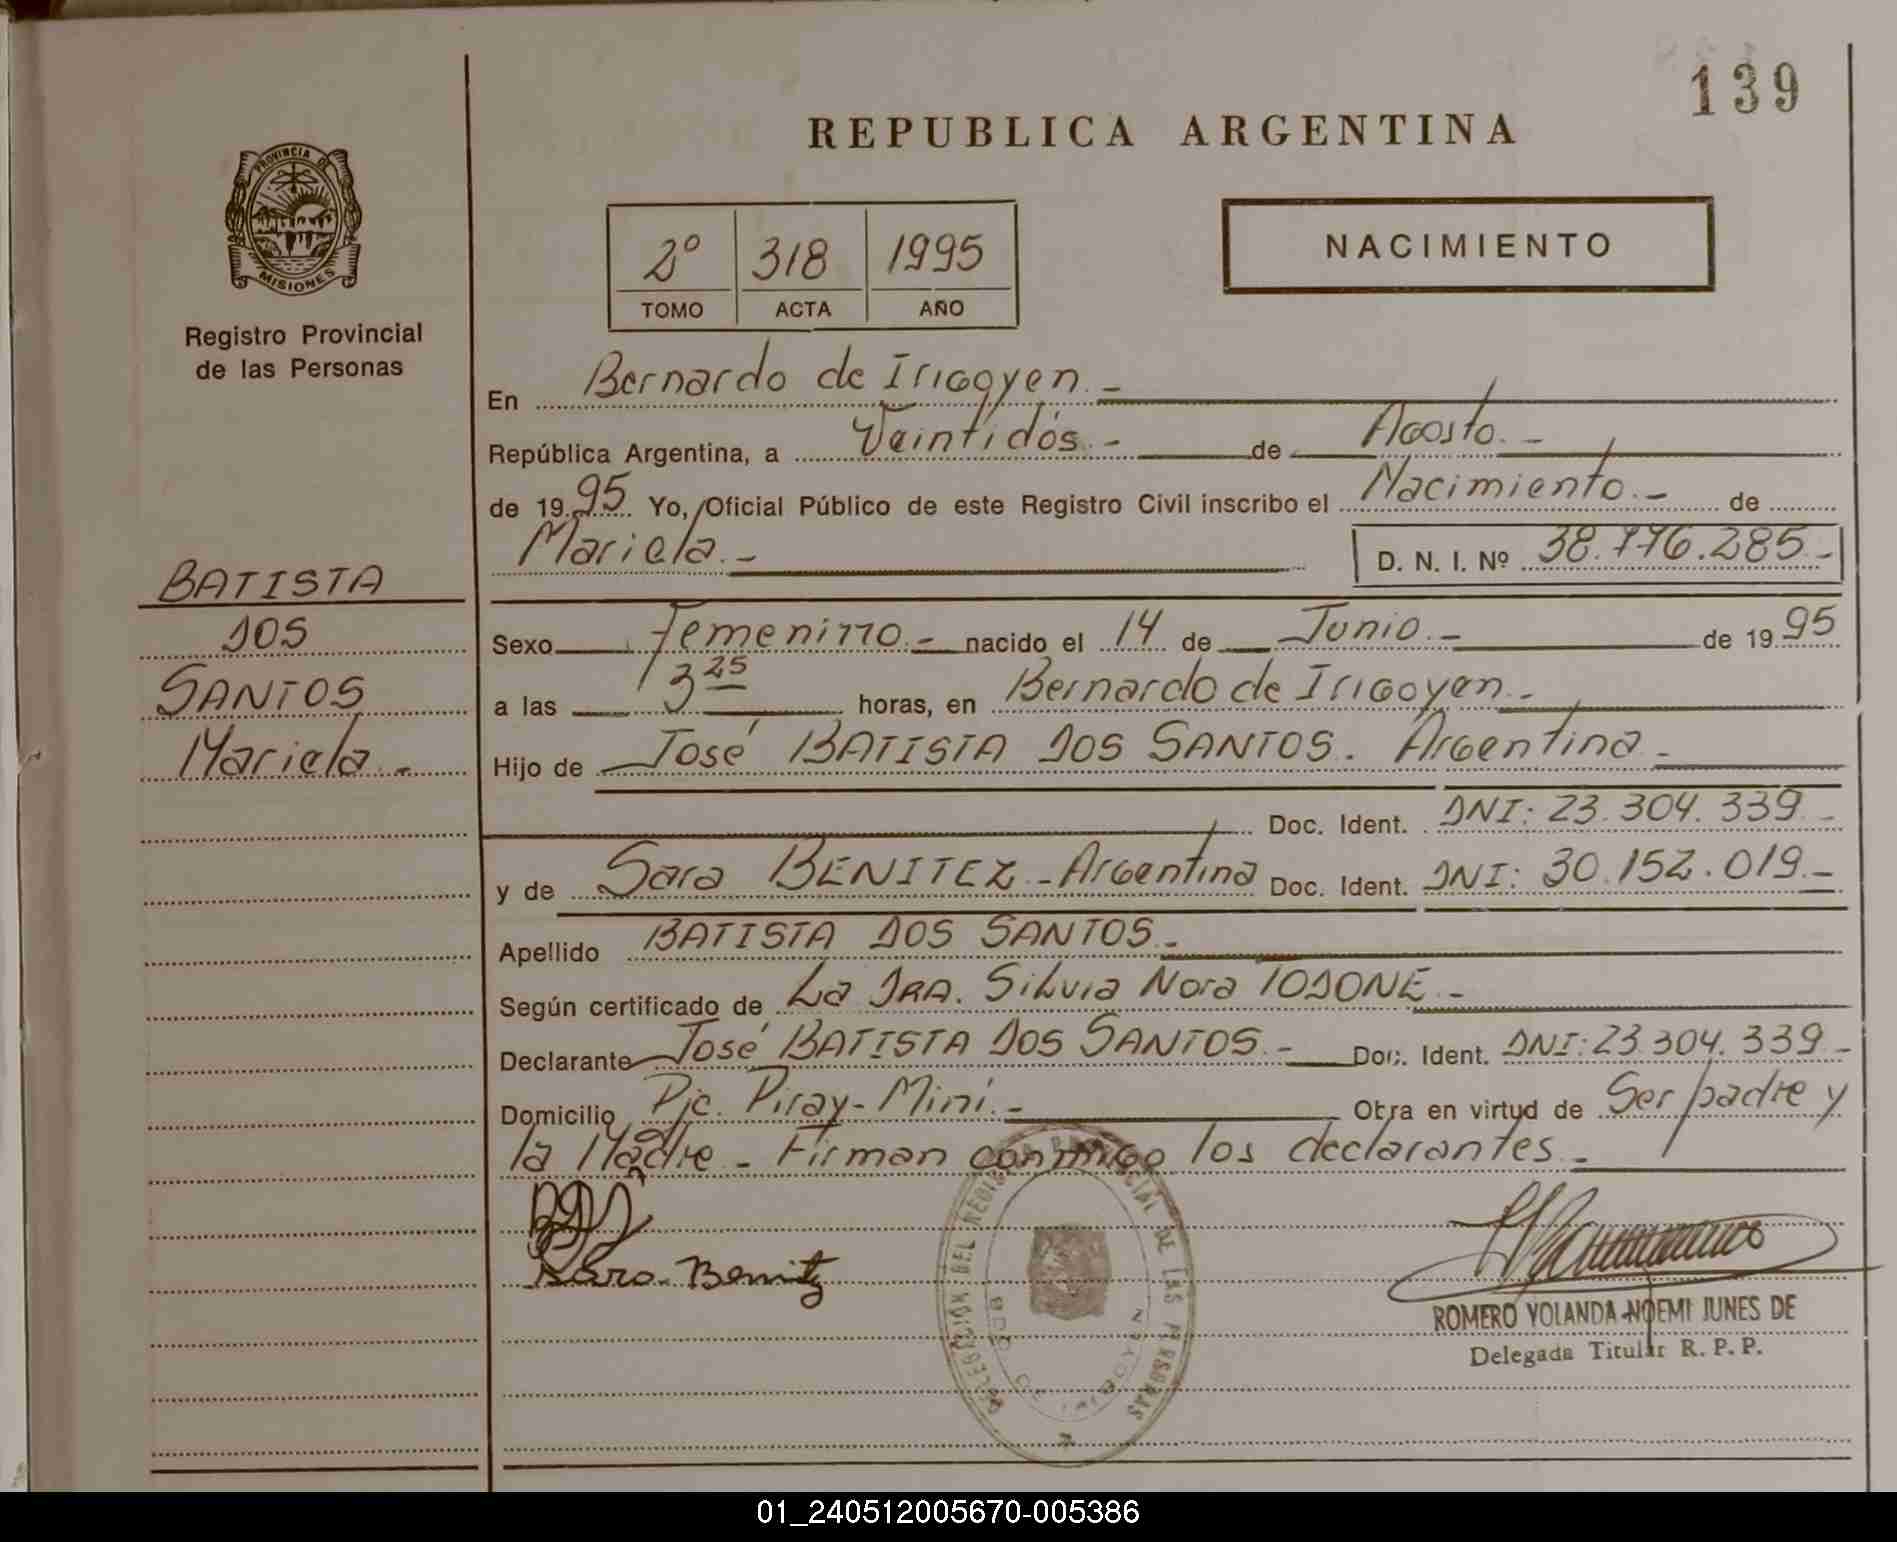 139
REPUBLICA ARGENTINA
PROVINCIA DE
MISIONES
Registro Provincial
de las Personas
2º 318 1995
TOMO ACTA AÑO
NACIMIENTO
En Bernardo de Irigoyen.-
República Argentina, a Veintidós.- de Agosto.-
de 1995 Yo, Oficial Público de este Registro Civil inscribo el Nacimiento.- de
Mariela.- D. N. I. Nº 38.776.285.-
BATISTA
DOS
SANTOS
Mariela.-
Sexo Femenino.- nacido el 14 de Junio.- de 1995
a las 3 25 horas, en Bernardo de Irigoyen.-
Hijo de José BATISTA DOS SANTOS. Argentina.-
Doc. Ident. DNI: 23.304.339.-
y de Sara BENITEZ.-Argentina Doc. Ident. DNI: 30.152.019.-
Apellido BATISTA DOS SANTOS.-
Según certificado de La DRA. Silvia Nora TODONE.-
Declarante José BATISTA DOS SANTOS.- Doc. Ident. DNI: 23.304.339.-
Domicilio Pje. Piray-Miní.- Obra en virtud de Ser padre y
la Madre.- Firman conmigo los declarantes.-
Sara. Benitz
DELEGACIÓN DEL REGISTRO PROVINCIAL DE LAS PERSONAS
BDO DE IRIGOYEN
ROMERO YOLANDA NOEMI JUNES DE
Delegada Titular R. P. P.
01_240512005670-005386